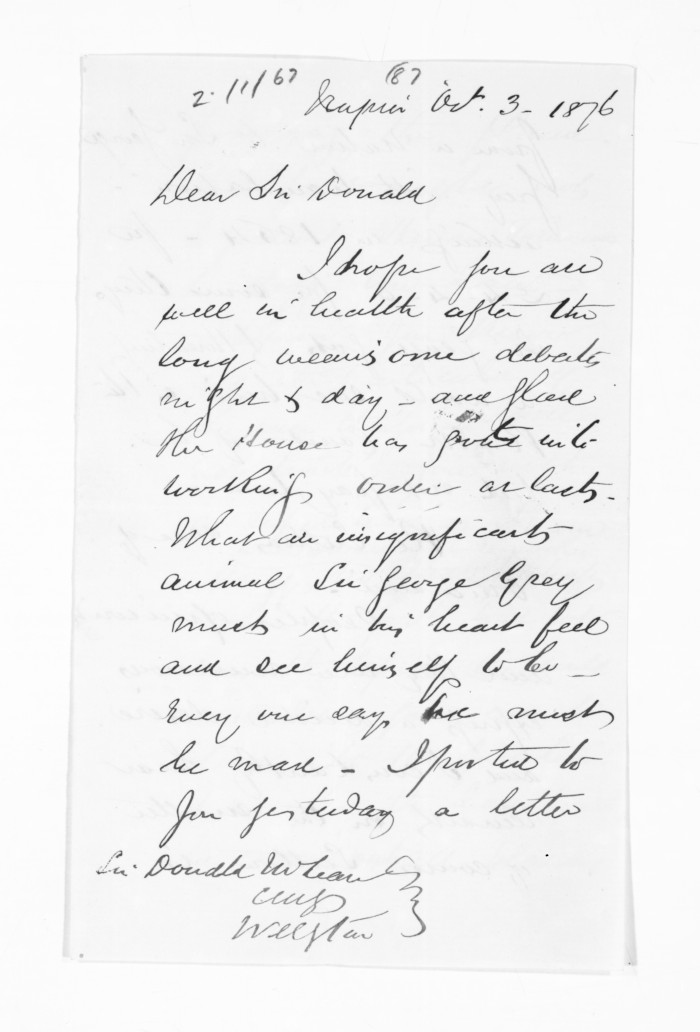 2.11/67 (87)
Napier Oct. 3 - 1876
Dear Sir Donald
I hope you are
well in health after the
long wearisome debates
night & day - and glad
the House has got into
working order at last -
What an insignificant
animal Sir George Grey
must in his heart feel
and see himself to be -
Every one says he must
be mad - I posted to
you yesterday a letter
Sir Donald McLean
Wellgton